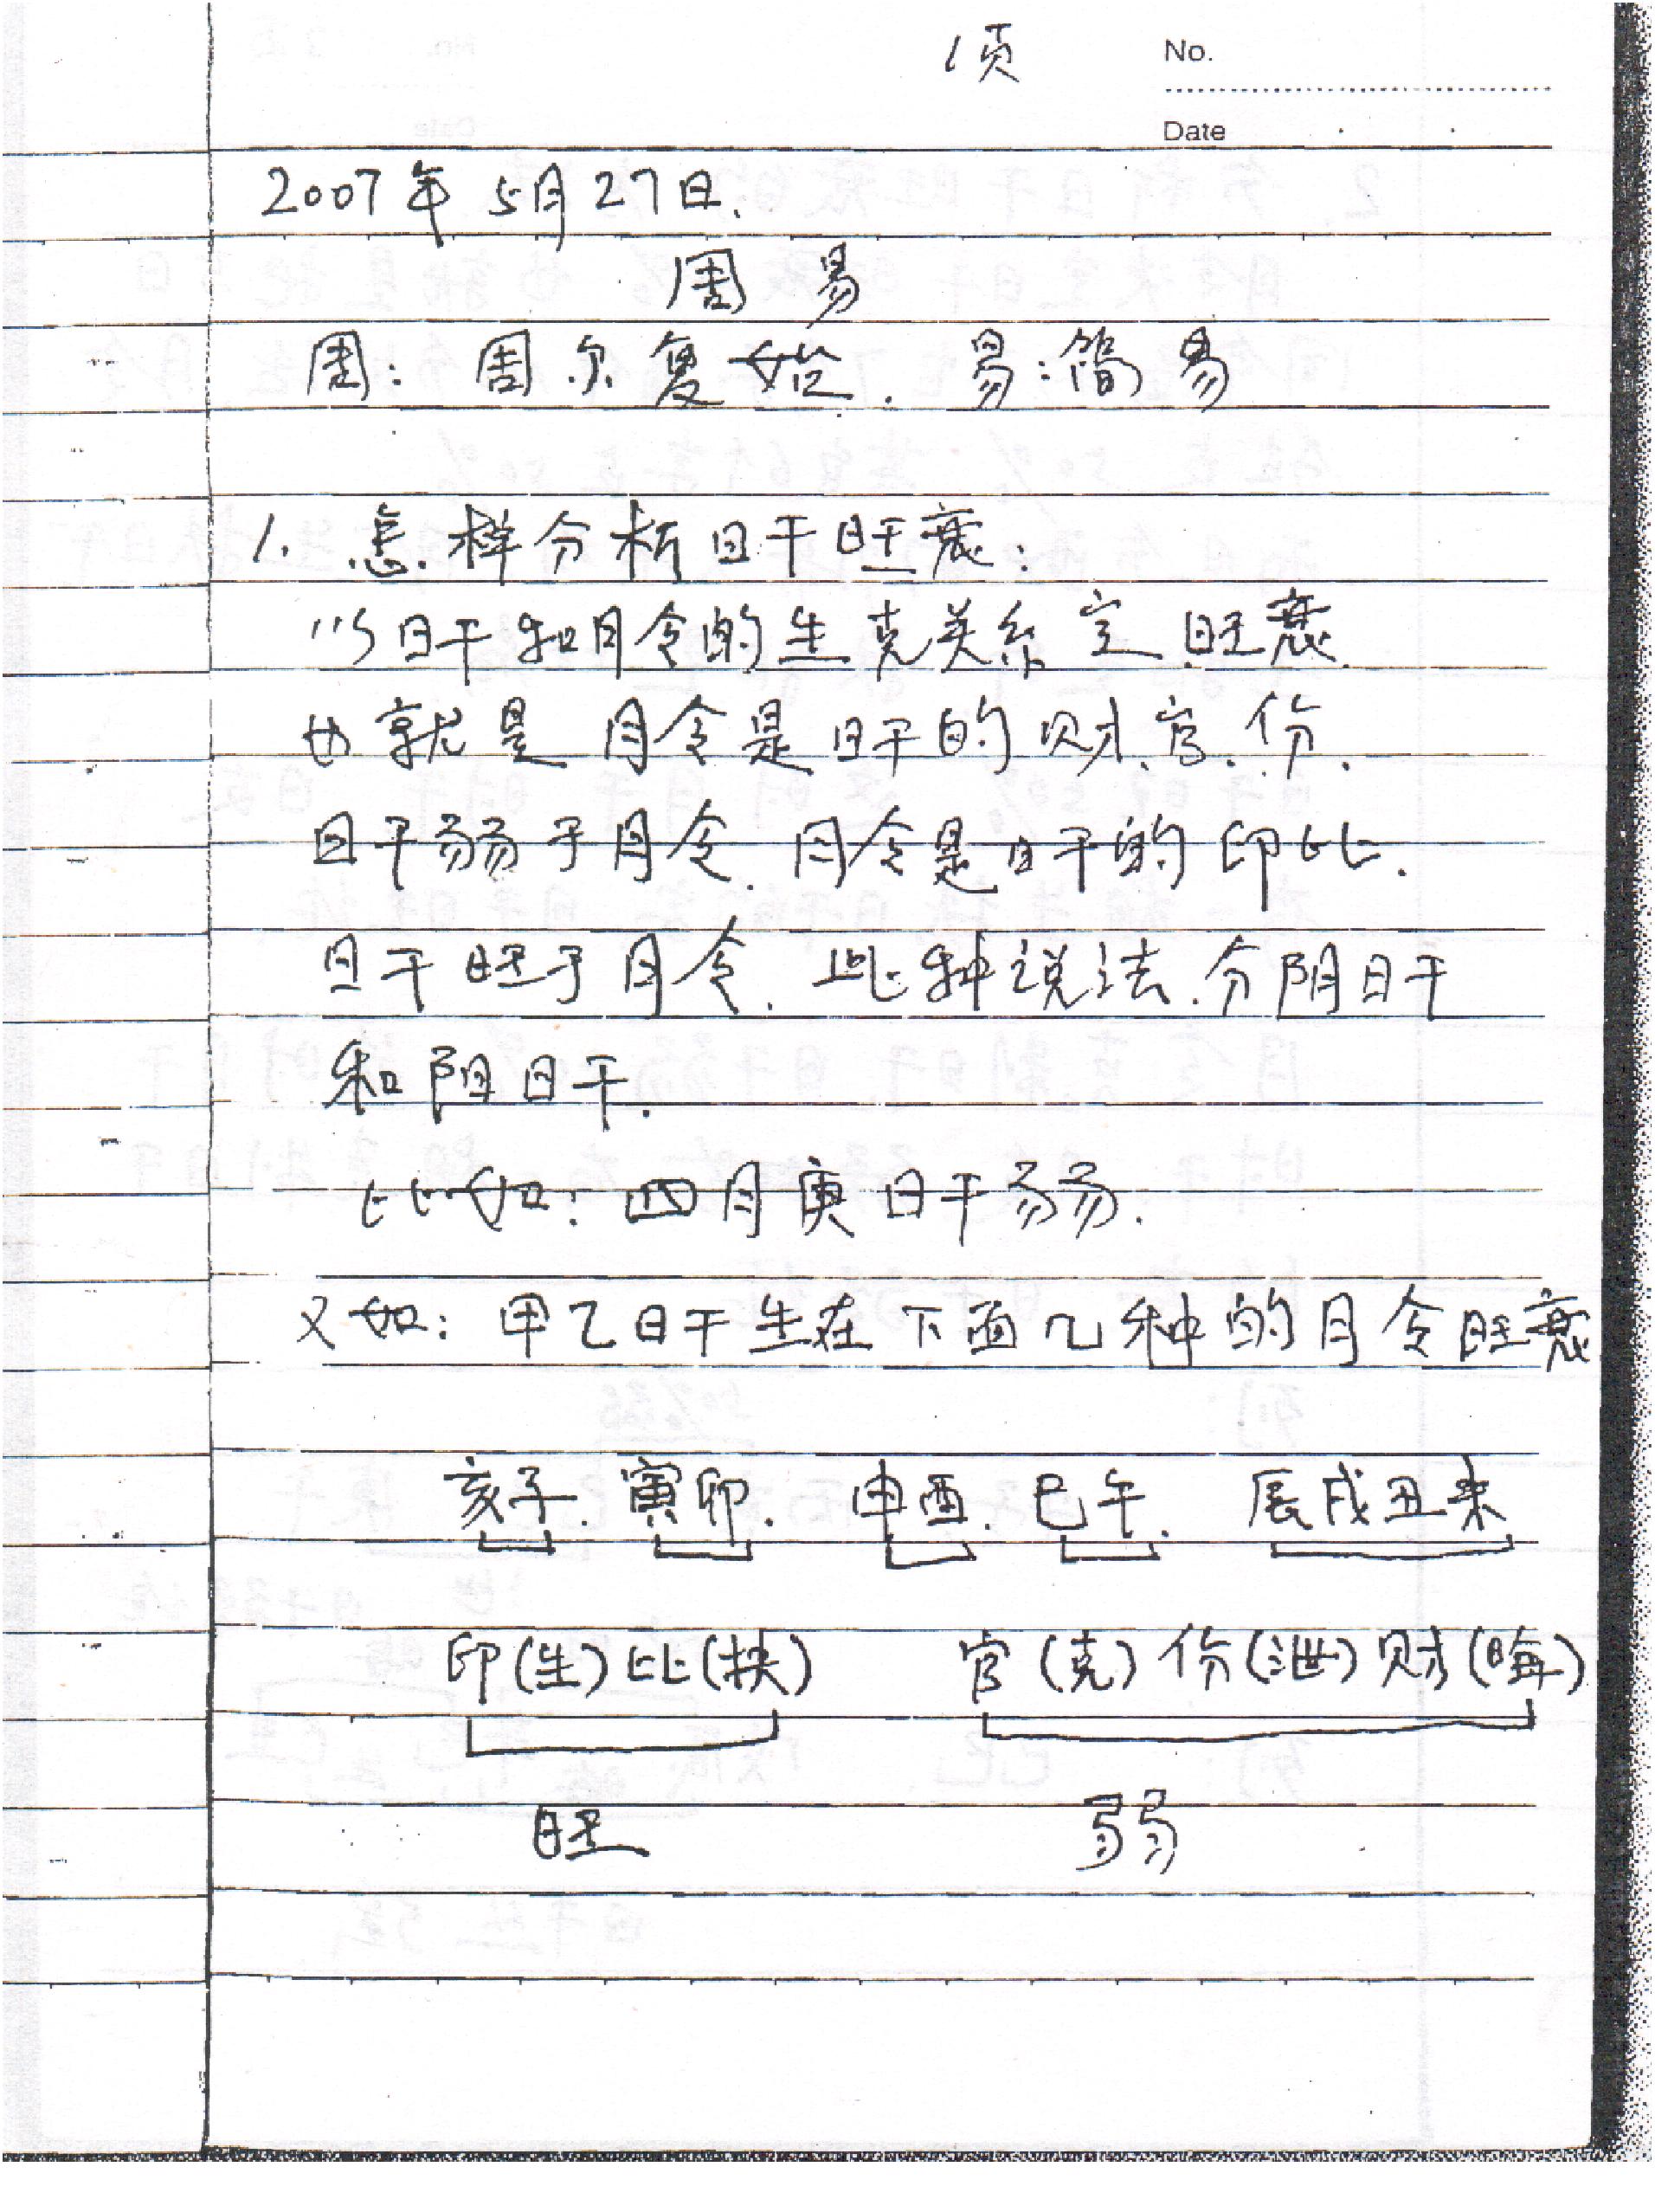 1页
No.
Date
2007年5月27日.
周易
周: 周尔复始. 易:简易
1. 怎样分析日干旺衰:
以日干和月令的生克关系定旺衰.
也就是月令是日干的财.官.伤.
日干弱于月令.月令是日干的印比.
日干旺于月令.此种说法.分阴日干
和阳日干.
比如:四月庚日干弱.
又如:甲乙日干生在下面几种的月令旺衰
亥子.寅卯.申酉.巳午.辰戌丑未
印(生)比(扶) 官(克)伤(泄)财(晦)
旺 弱